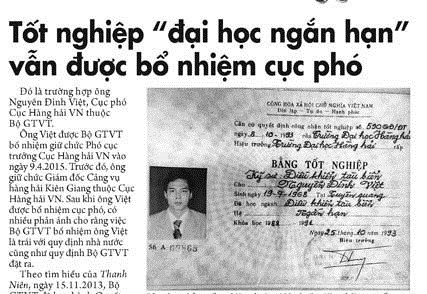 Tốt nghiệp “đại học ngắn hạn”
vẫn được bổ nhiệm cục phó
Đó là trường hợp ông
Nguyễn Đình Việt, Cục phó
Cục Hàng hải VN thuộc
Bộ GTVT.
Ông Việt được Bộ GTVT
bổ nhiệm giữ chức Phó cục
trưởng Cục Hàng hải VN vào
ngày 9.4.2015. Trước đó, ông
giữ chức Giám đốc Cảng vụ
hàng hải Kiên Giang thuộc Cục
Hàng hải VN. Sau khi ông Việt
được bổ nhiệm cục phó, có
nhiều phản ánh cho rằng việc
Bộ GTVT bổ nhiệm ông Việt
là trái với quy định nhà nước
cũng như quy định Bộ GTVT
đặt ra.
Theo tìm hiểu của Thanh
Niên, ngày 15.11.2013, Bộ
CỘNG HÒA XÃ HỘI CHỦ NGHĨA VIỆT NAM
Độc lập - Tự do - Hạnh phúc
Căn cứ quyết định công nhận tốt nghiệp số
ngày 8-10-1993 của Trường Đại học Hàng hải
Hiệu trưởng Trường Đại học Hàng hải cấp
BẰNG TỐT NGHIỆP
Kỹ sư Điều khiển tàu biển
Nguyễn Đình Việt
Sinh ngày 19-9-1968 Tại Tuyên quang
Đã học ngành Điều khiển tàu biển
Hệ Ngắn hạn
Khóa học 1988
Ngày 25 tháng 10 năm 1993
Hiệu trưởng
Số A